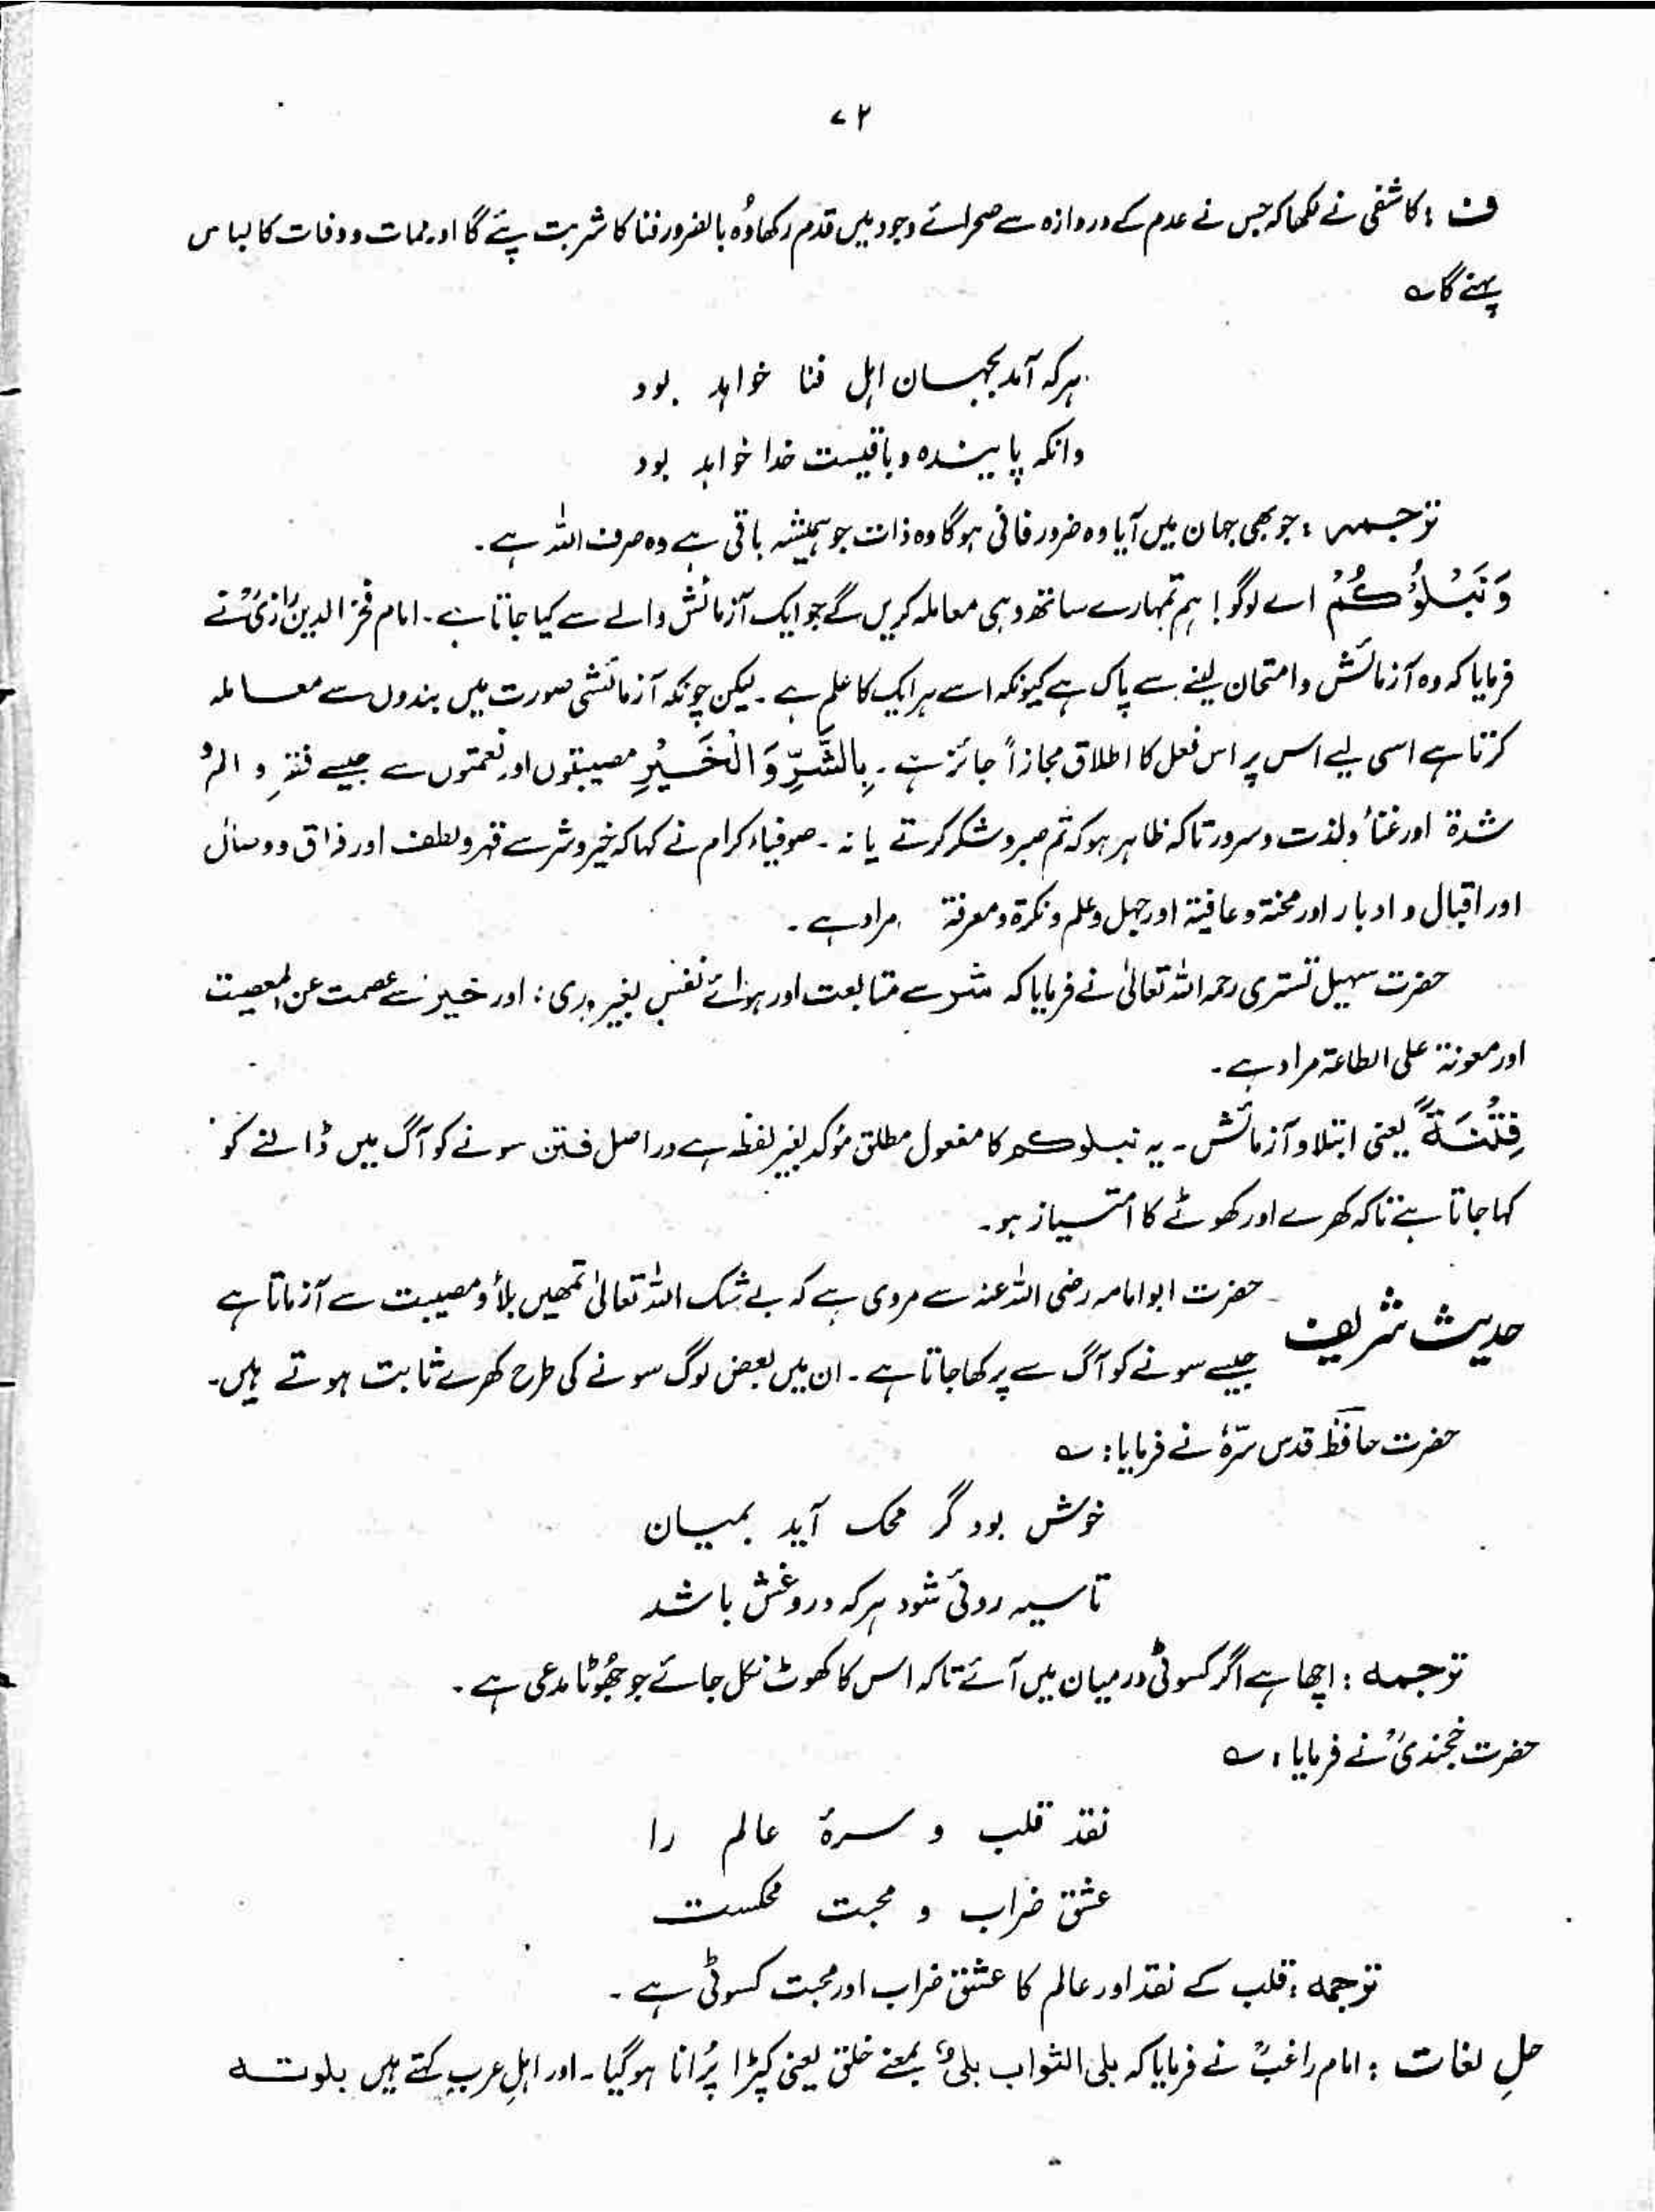 ۷۲
ف : کاشفی نے لکھا کہ جس نے عدم کے دروازہ سے صحرائے وجود میں قدم رکھا وُہ بالضرور فنا کا شربت پئے گا اور ممات و وفات کا لباس
پہنے گا ؎
ہر کہ آمد بجہان اہل فنا خواہد بود
وانکہ پایندہ و باقیست خدا خواہد بود
ترجمہ : جو بھی جہان میں آیا وہ ضرور فانی ہوگا وہ ذات جو ہمیشہ باقی ہے وہ صرف اللہ ہے ۔
وَنَبْلُوْكُمْ اے لوگو! ہم تمہارے ساتھ وہی معاملہ کریں گے جو ایک آزمائش والے سے کیا جاتا ہے ۔ امام فخر الدین رازیؒ نے
فرمایا کہ وہ آزمائش و امتحان لینے سے پاک ہے کیونکہ اسے ہر ایک کا علم ہے ۔ لیکن چونکہ آزمائشی صورت میں بندوں سے معاملہ
کرتا ہے اسی لیے اس پر اس فعل کا اطلاق مجازاً جائز ہے ۔ بِالشَّرِّ وَالْخَيْرِ مصیبتوں اور نعمتوں سے جیسے فقر و الم و
شدۃ اور غنأ ولذت و سرور تاکہ ظاہر ہو کہ تم صبر و شکر کرتے یا نہ ۔ صوفیاء کرام نے کہا کہ خیر و شر سے قہر و لطف اور فراق و وصال
اور اقبال و ادبار اور محنۃ و عافیۃ اور جہل و علم و نکرۃ و معرفۃ مراد ہے ۔
حضرت سہیل تستری رحمہ اللہ تعالیٰ نے فرمایا کہ شر سے متابعت اور ہوائے نفس بغیر ہدیٰ ؛ اور خیر سے عصمت عن المعصیت
اور معونۃ علی الطاعۃ مراد ہے ۔
فِتْنَةً یعنی ابتلا و آزمائش ۔ یہ نبلوکم کا مفعول مطلق مؤکد بغیر لفظہ ہے در اصل فتن سونے کو آگ میں ڈالنے کو
کہا جاتا ہے تاکہ کھرے اور کھوٹے کا امتیاز ہو ۔
حدیث شریف حضرت ابوامامہ رضی اللہ عنہ سے مروی ہے کہ بے شک اللہ تعالیٰ تمھیں بلأ و مصیبت سے آزماتا ہے
جیسے سونے کو آگ سے پرکھا جاتا ہے ۔ ان میں بعض لوگ سونے کی طرح کھرے ثابت ہوتے ہیں ۔
حضرت حافظ قدس سرّہٗ نے فرمایا : ؎
خوش بود گر محک آید بمیان
تا سیہ روئی شود ہر کہ دروغش باشد
ترجمہ : اچھا ہے اگر کسوٹی درمیان میں آئے تاکہ اس کا کھوٹ نکل جائے جو جھُوٹا مدعی ہے ۔
حضرت خجندیؒ نے فرمایا : ؎
نقد قلب و سرۂ عالم را
عشق ضراب و محبت محکست
ترجمہ : قلب کے نقد اور عالم کا عشق ضراب اور محبت کسوٹی ہے ۔
حلِ لغات : امام راغبؒ نے فرمایا کہ بلی الثواب بلیٌ بمعنے خلق یعنی کپڑا پُرانا ہو گیا ۔ اور اہلِ عرب کہتے ہیں بلوتہ